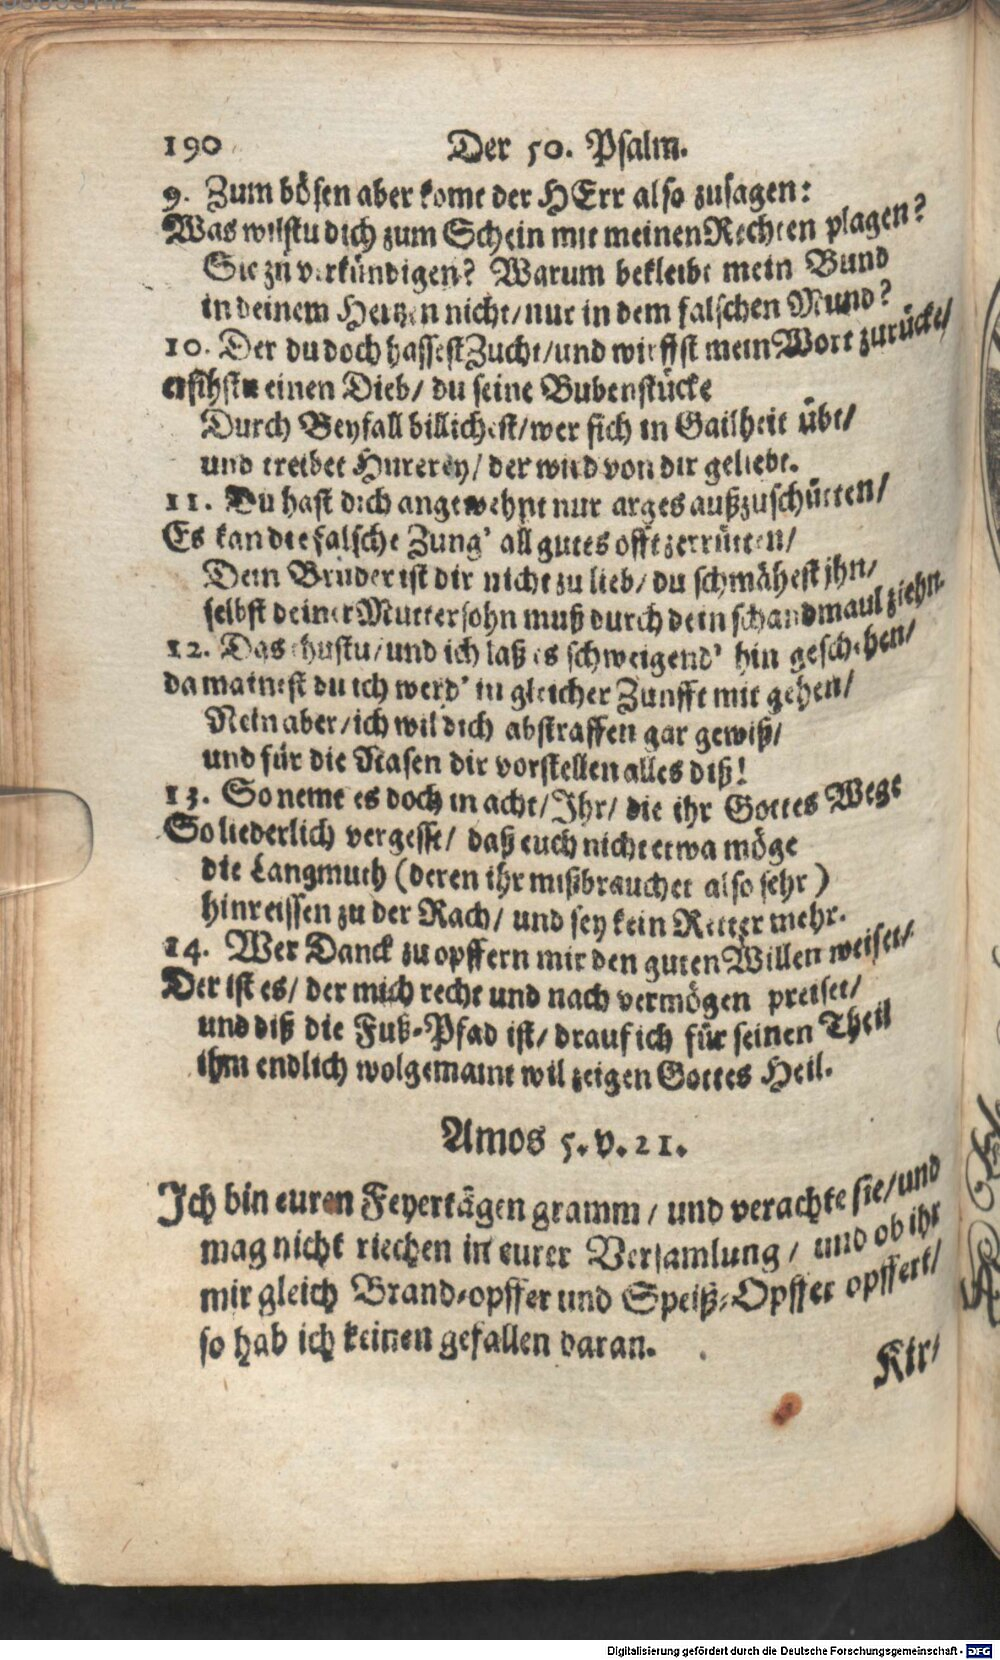 190 Der 50. Psalm.
9. Zum bösen aber komt der HErr also zusagen:
Was wilstu dich zum Schein mit meinen Rechten plagen?
Sie zu verkündigen? Warum bekleibt mein Bund
in deinem Hertzen nicht/ nur in dem falschen Mund?
10. Der du doch hassest Zucht/ und wirffst mein Wort zurücke/
ersihstu einen Dieb/ du seine Bubenstücke
Durch Beyfall billichest/ wer sich in Gailheit übt/
und treibet Hurerey/ der wird von dir geliebt.
11. Du hast dich angewehnt nur arges außzuschütten/
Es kan die falsche Zung' all gutes offt zerrütten/
Dein Bruder ist dir nicht zu lieb/ du schmähest jhn/
selbst deiner Mutter sohn muß durch dein schandmaul ziehn.
12. Das thustu/ und ich laß es schweigend' hin geschehen/
da mainest du ich werd' in gleicher Zunfft mit gehen/
Nein aber/ ich wil dich abstraffen gar gewiß/
und für die Nasen dir vorstellen alles diß!
13. So nemt es doch in acht/ Ihr/ die ihr Gottes Wege
So liederlich vergesst/ daß euch nicht etwa möge
die Langmuth (deren ihr mißbrauchet also sehr)
hinreissen zu der Rach/ und sey kein Retter mehr.
14. Wer Danck zu opffern mir den guten Willen weiset/
Der ist es/ der mich recht und nach vermögen preiset/
und diß die Fuß-Pfad ist/ drauf ich für seinen Theil
ihm endlich wolgemaint wil zeigen Gottes Heil.
Amos 5. v. 21.
Ich bin euren Feyertägen gramm/ und verachte sie/ und
mag nicht riechen in eurer Versamlung/ und ob ihr
mir gleich Brand-opffer und Speiß-Opffer opffert/
so hab ich keinen gefallen daran.
Kir-
Digitalisierung gefördert durch die Deutsche Forschungsgemeinschaft - DFG